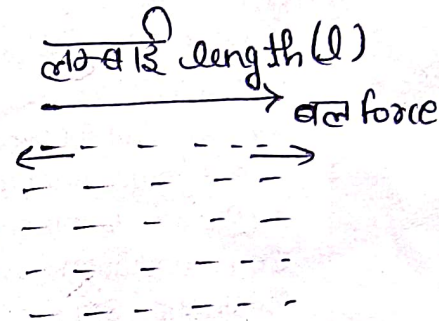 लम्बाई length (l)
बल force